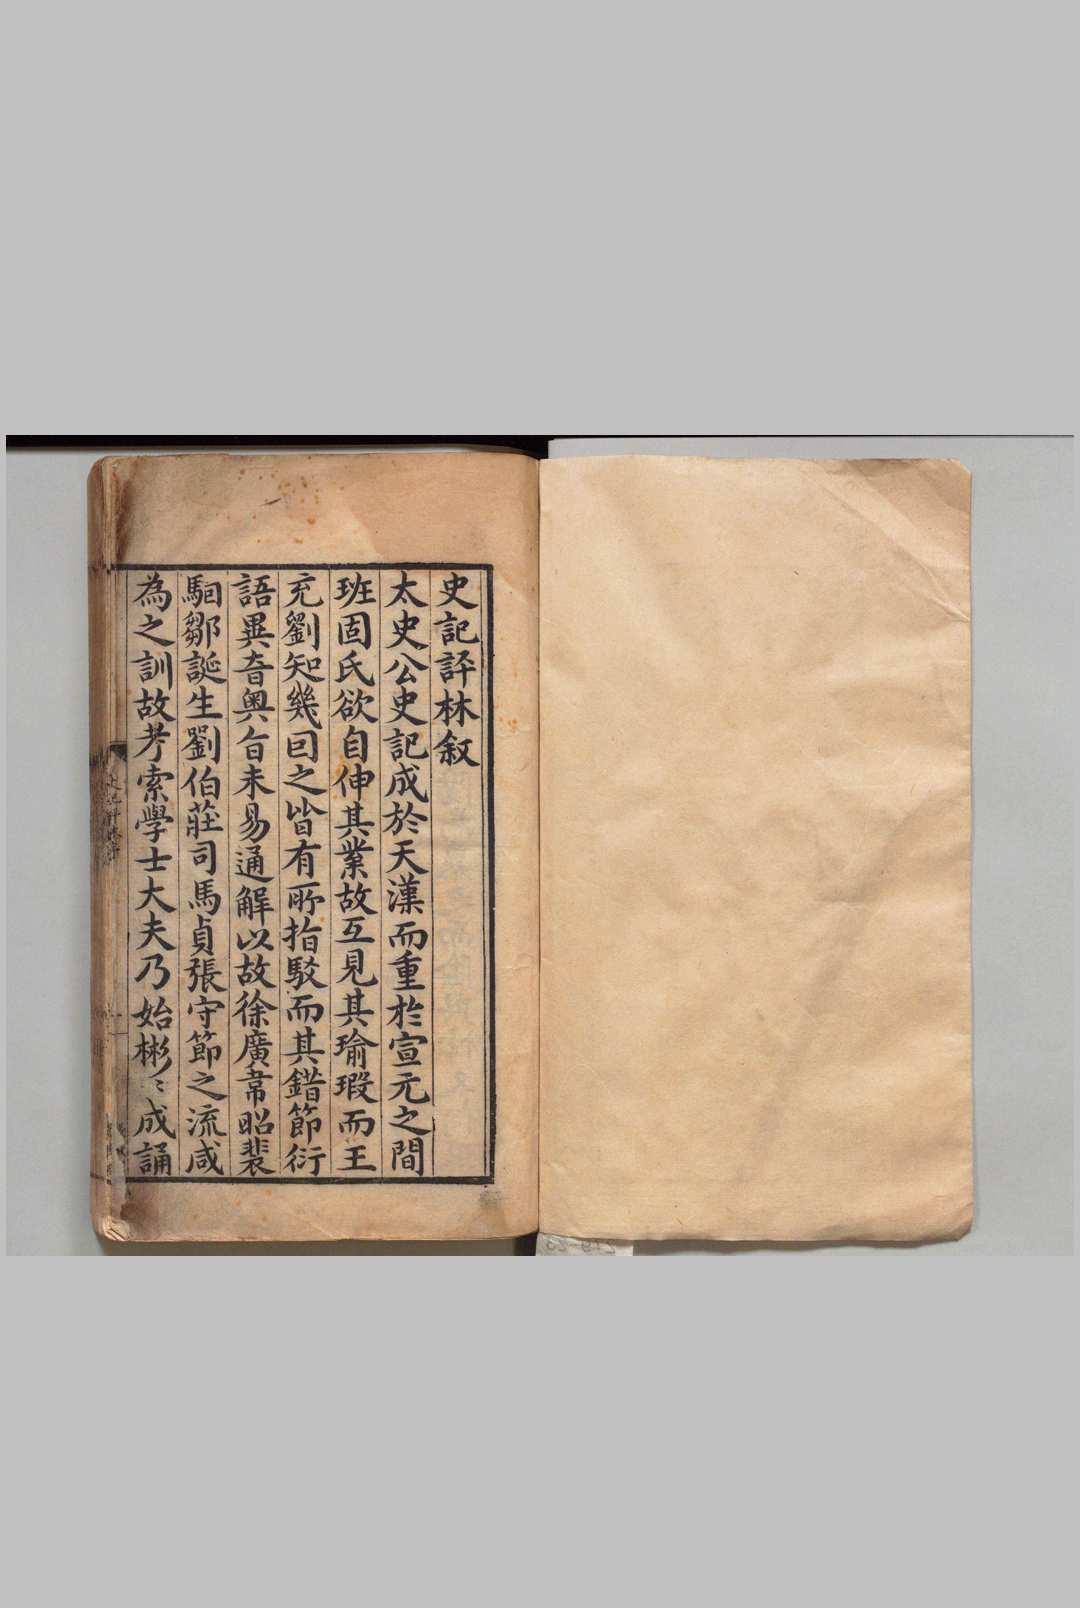 史記評林叙
太史公史記成於天漢而重於宣元之間
班固氏欲自伸其業故互見其瑜瑕而王
充劉知幾回之皆有所指駁而其錯節衍
語異音奥旨未易通解以故徐廣韋昭裴
駰鄒誕生劉伯莊司馬貞張守節之流咸
為之訓故考索學士大夫乃始彬〻成誦